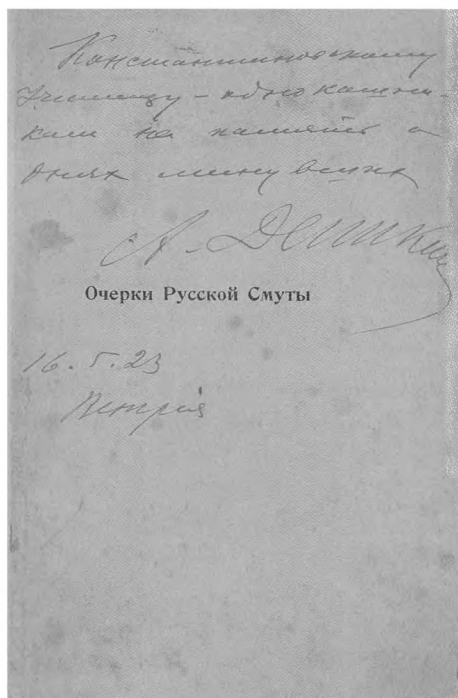 Константиновскому
Училищу – однокашни-
кам на память о
днях минувших
А. Деникин
Очерки Русской Смуты
16. 5. 23
Венгрия